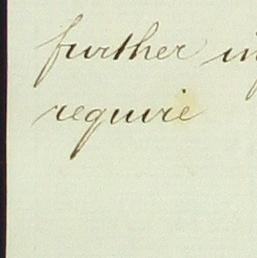 further
require